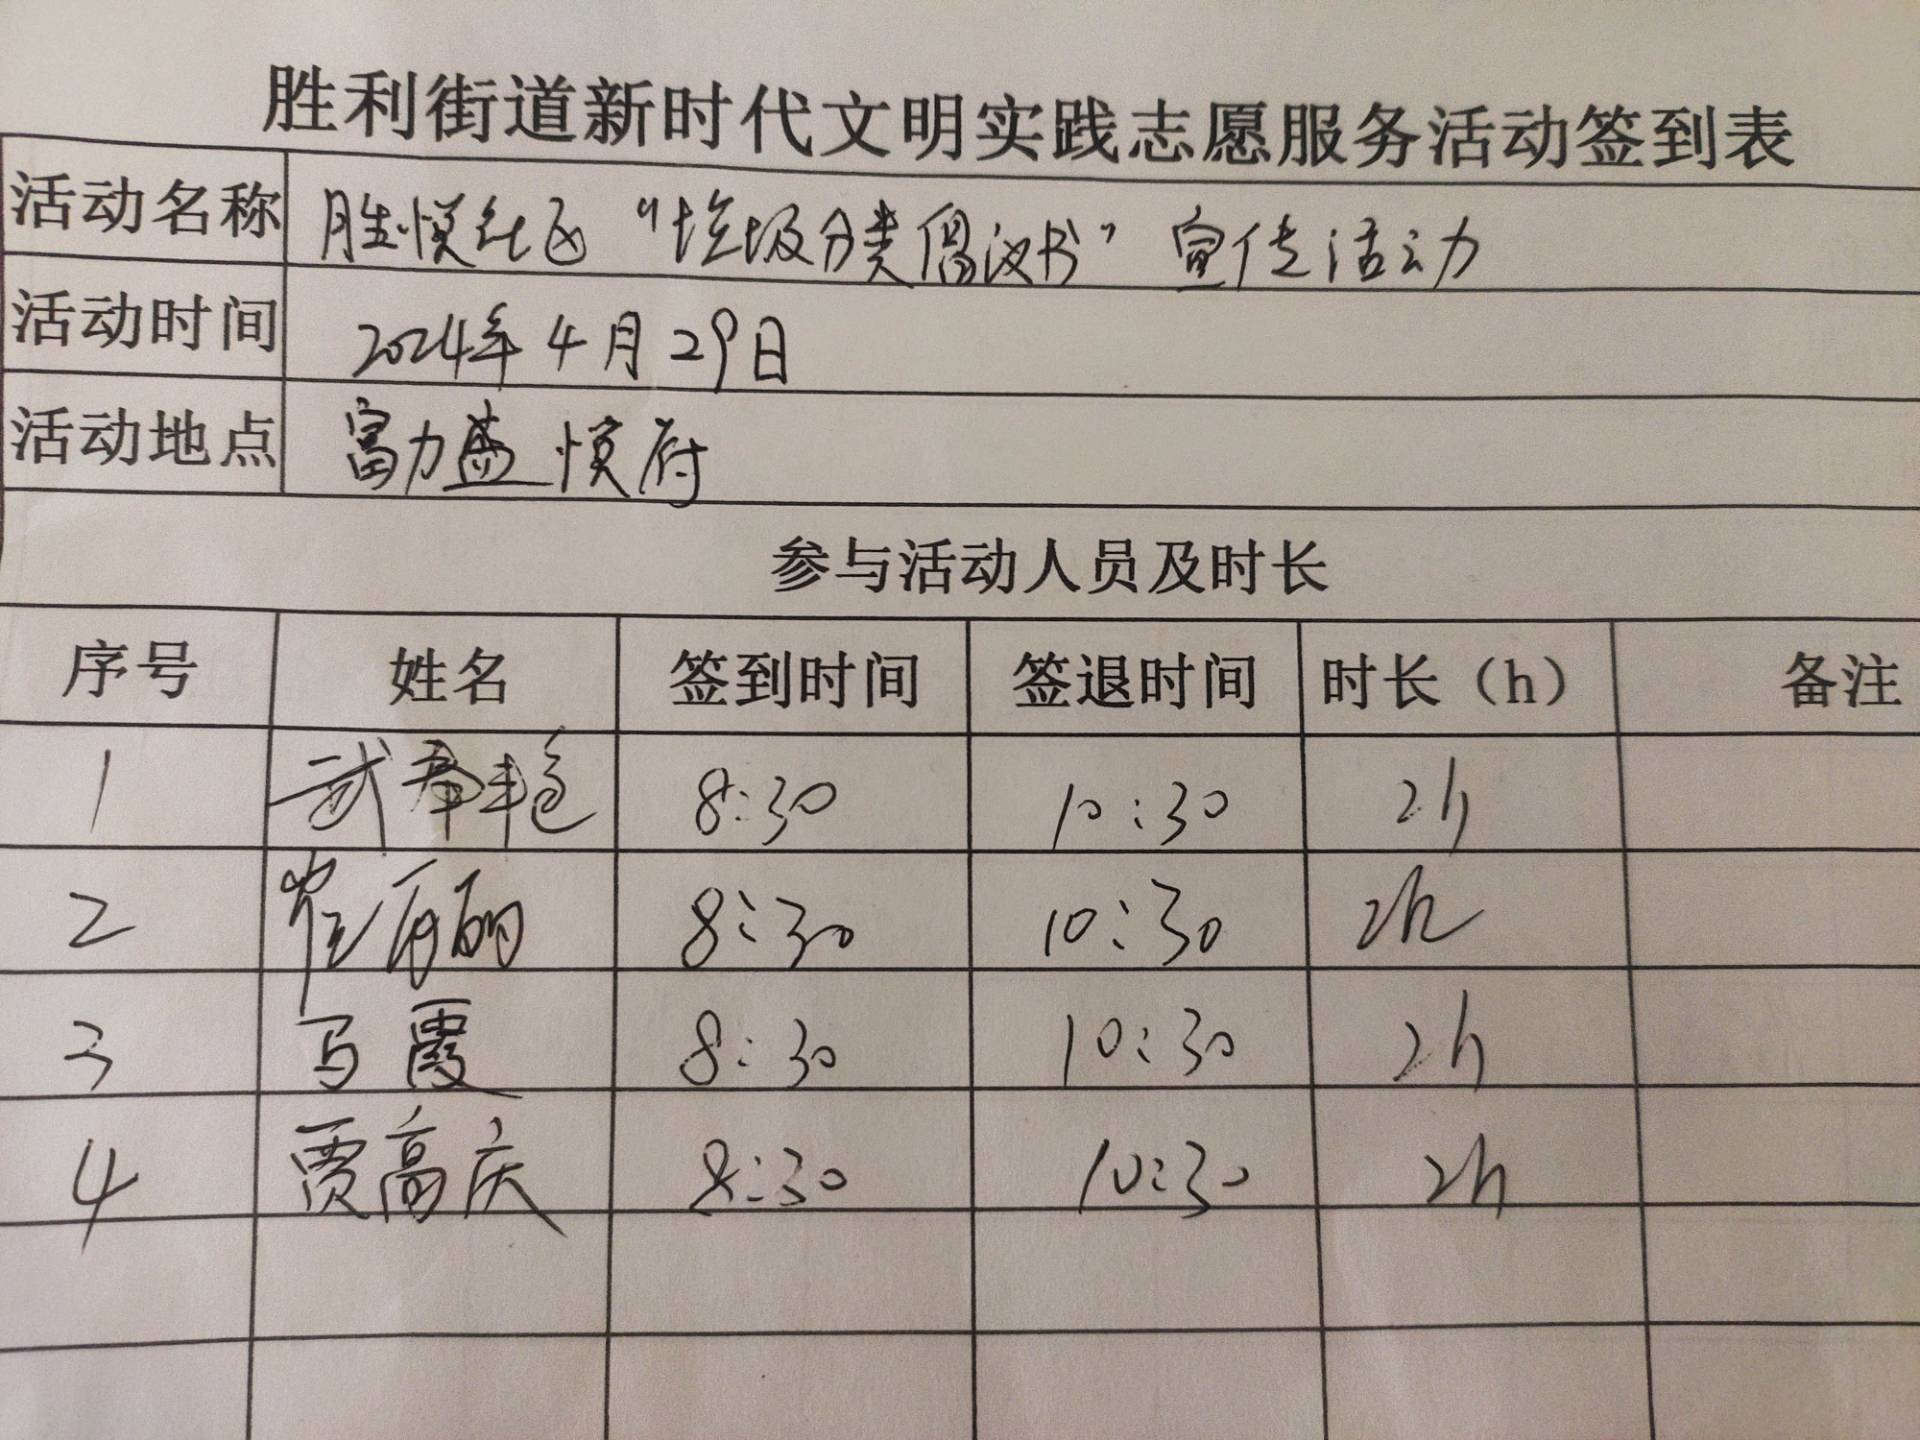 胜利街道新时代文明实践志愿服务活动签到表
活动名称 胜悦社区“垃圾分类倡议书”宣传活动
活动时间 2024年4月29日
活动地点 富力盛悦府
参与活动人员及时长
序号 姓名 签到时间 签退时间 时长（h） 备注
1 武春艳 8:30 10:30 2h
2 崔丽 8:30 10:30 2h
3 马霞 8:30 10:30 2h
4 贾高庆 8:30 10:30 2h